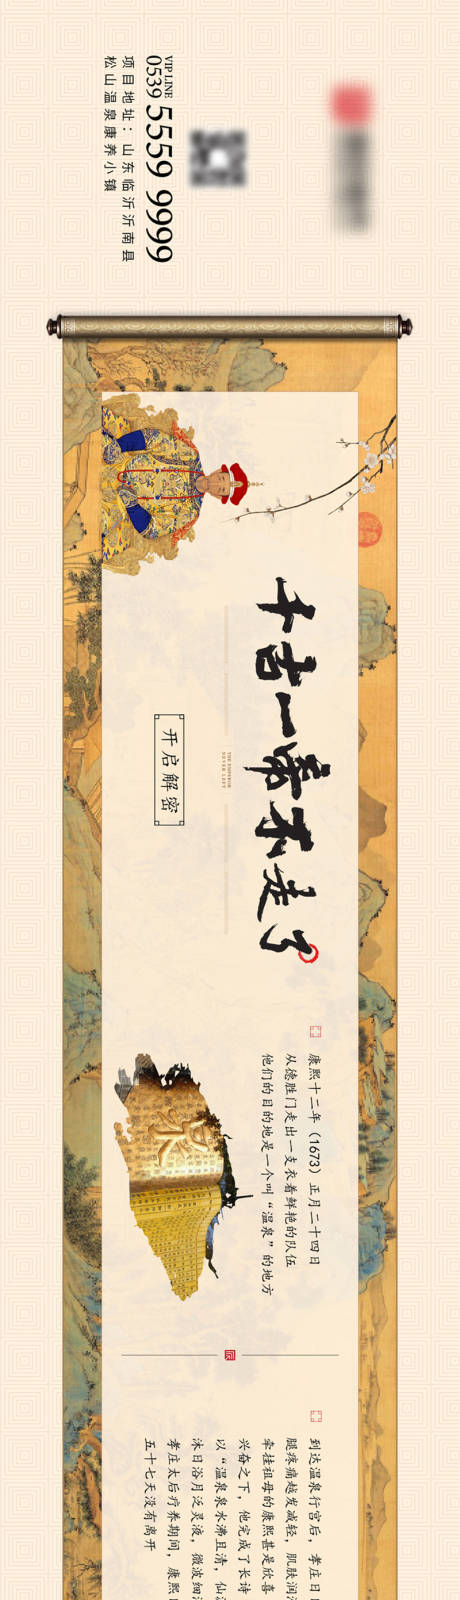 VIP LINE
0539 5559 9999
项目地址：山东临沂沂南县
松山温泉康养小镇
千古一帝不走了
THE EMPEROR
NEVER LEFT
开启解密
康熙十二年（1673）正月二十四日
从德胜门走出一支衣着鲜艳的队伍
他们的目的地是一个叫“温泉”的地方
到达温泉行宫后，孝庄日
腿疼痛越发减轻，肌肤润
牵挂祖母的康熙甚是欣喜
兴奋之下，他完成了长诗
以“温泉泉水沸且清，仙
沐日浴月泛灵液，微波细
孝庄太后疗养期间，康熙
五十七天没有离开